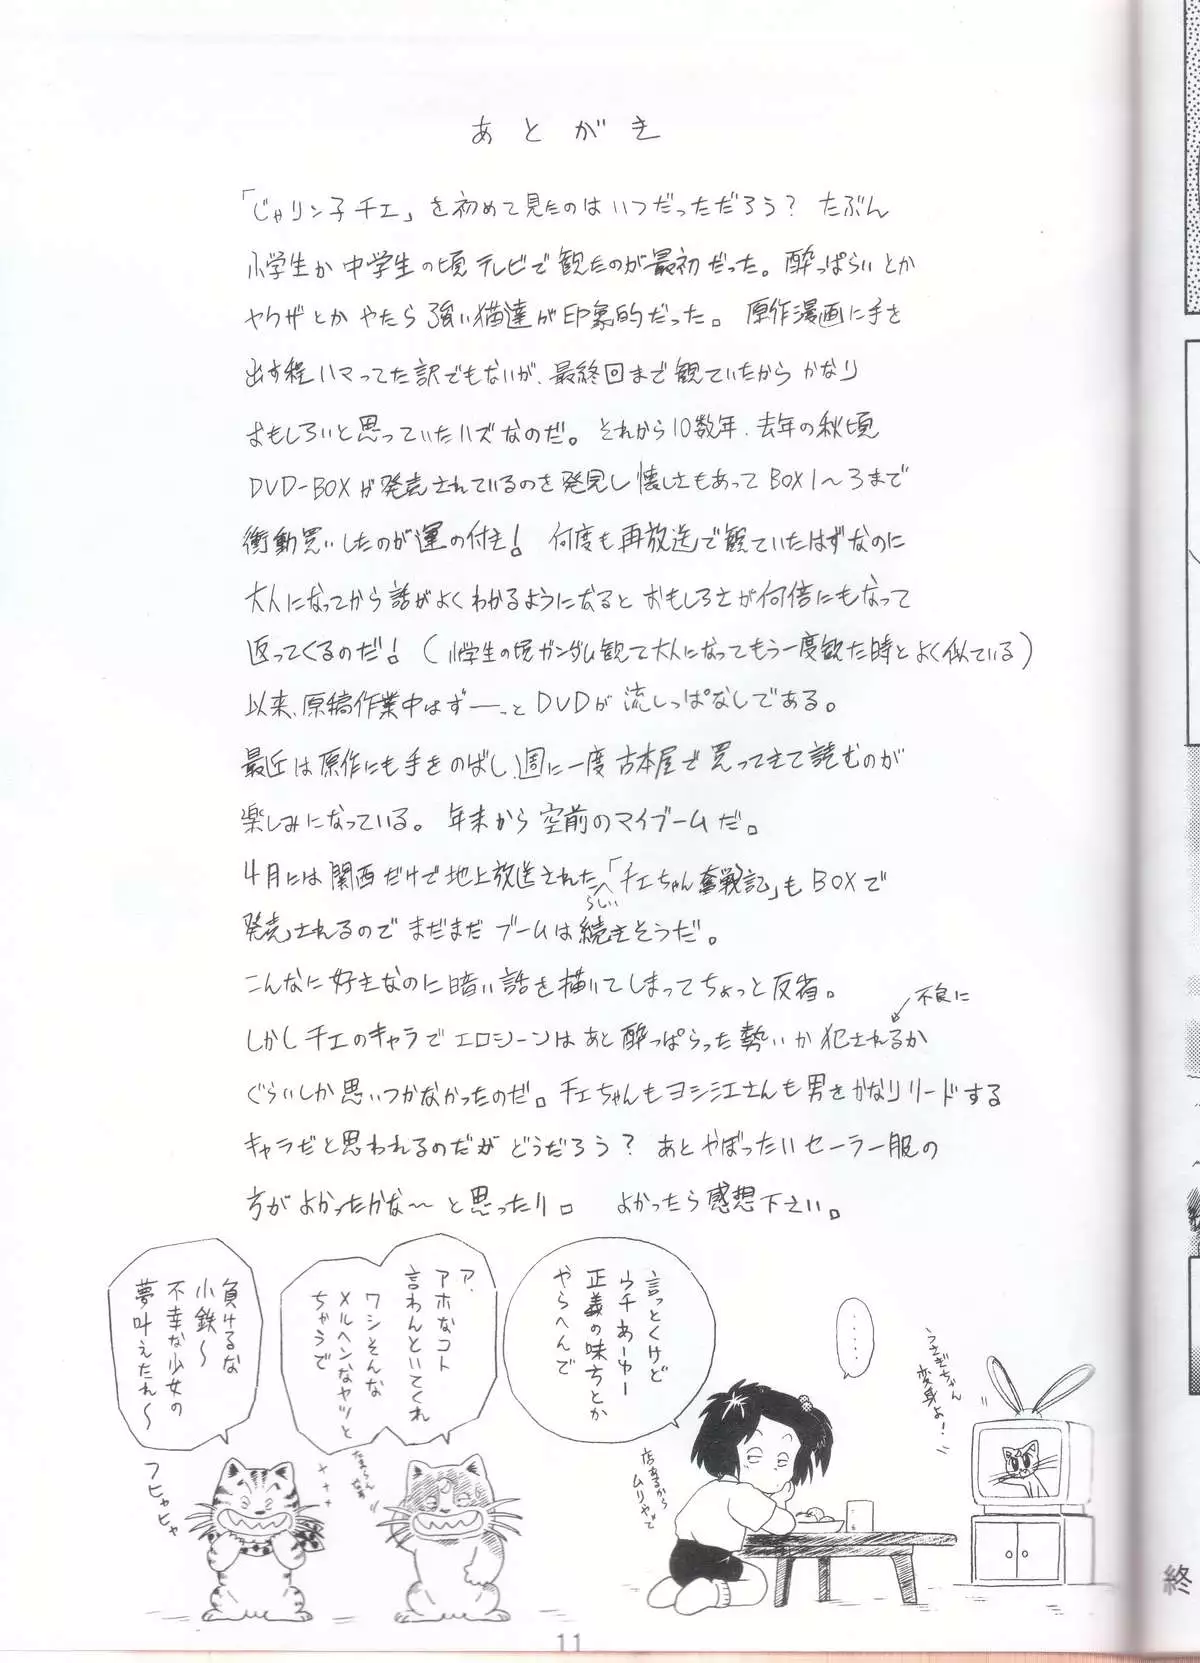 あとがき
「じゃリン子チエ」を初めて見たのはいつだっただろう？ たぶん
小学生か中学生の頃テレビで観たのが最初だった。酔っぱらいとか
ヤクザとかやたら強い猫達が印象的だった。 原作漫画に手を
出す程ハマってた訳でもないが、最終回まで観ていたから かなり
おもしろいと思っていたハズなのだ。それから10数年、去年の秋頃
DVD-BOXが発売されているのを発見し懐しさもあってBOX1～3まで
衝動買いしたのが運の付き！ 何度も再放送で観ていたはずなのに
大人になってから話がよくわかるようになると おもしろさが何倍にもなって
返ってくるのだ！（小学生の頃ガンダム観て大人になってもう一度観た時とよく似ている）
以来、原稿作業中はずーーっとDVDが流しっぱなしである。
最近は原作にも手をのばし、週に一度古本屋で買ってきて読むのが
楽しみになっている。 年末から空前のマイブームだ。
4月には関西だけで地上放送されたらしい「チエちゃん奮戦記」もBOXで
発売されるのでまだまだブームは続きそうだ。
こんなに好きなのに暗い話を描いてしまってちょっと反省。
不良に
しかしチエのキャラでエロシーンはあと酔っぱらった勢いか犯されるか
ぐらいしか思いつかなかったのだ。チエちゃんもヨシ江さんも男をかなりリードする
キャラだと思われるのだがどうだろう？ あとやぼったいセーラー服の
方がよかったかな～と思ったり。 よかったら感想下さい。
うさぎちゃん
変身よ！
‥‥‥
言っとくけど
ウチあーゆー
正義の味方とか
やらへんで
店あるから
ムリやで
ア、
アホなコト
言わんといてくれ
ワシそんな
メルヘンなヤツと
ちゃうで
負けるな
小鉄～
不幸な少女の
夢叶えたれ～
フヒャヒャ
11
終